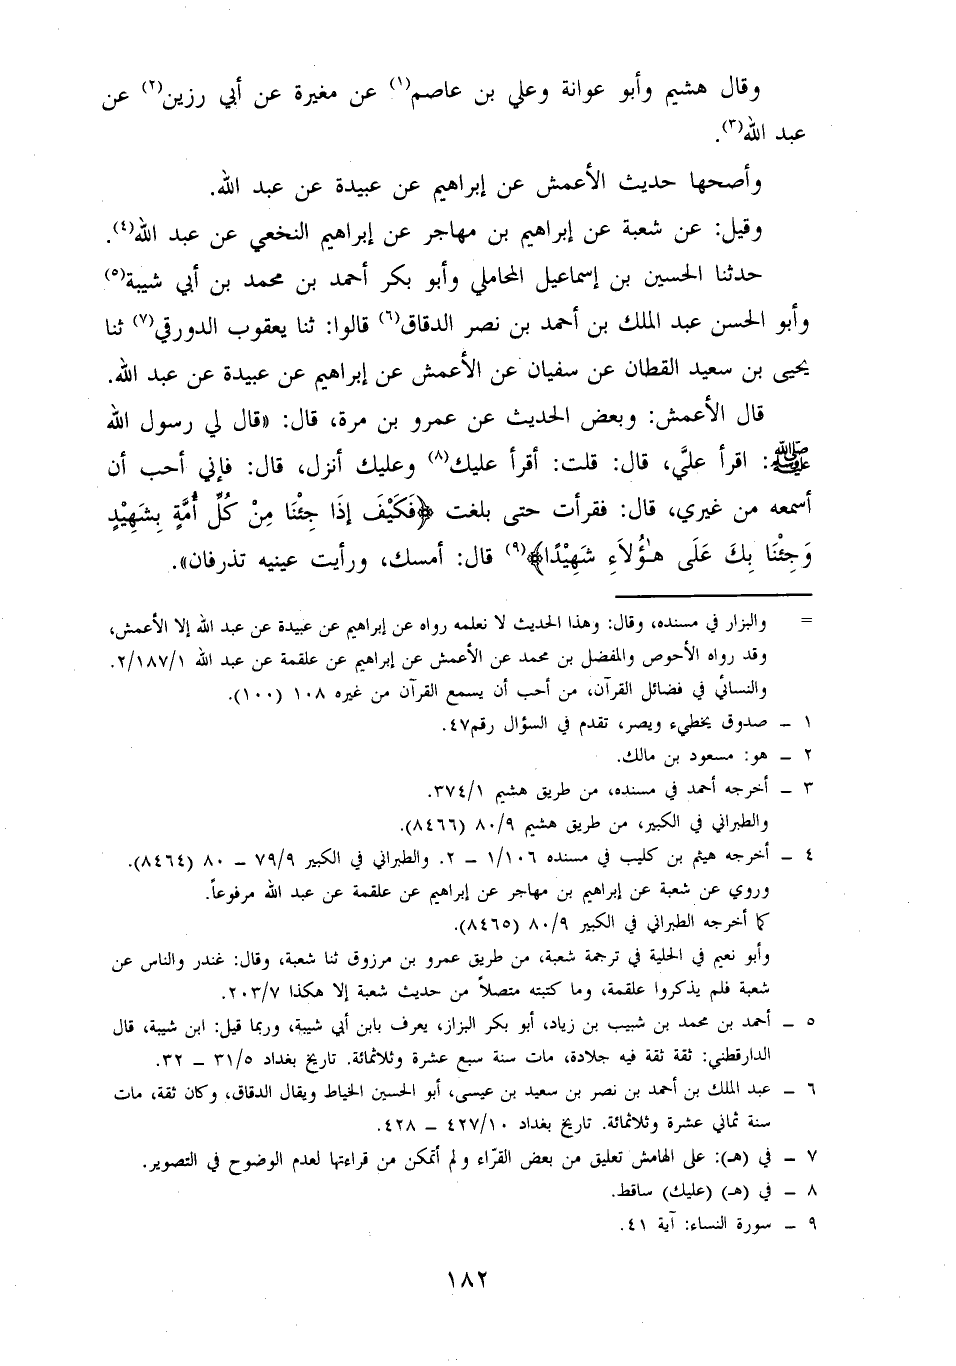 وقال هشيم وأبو عوانة وعلي بن عاصم(١) عن مغيرة عن أبي رزين(٢) عن
عبد الله(٣).
وأصحها حديث الأعمش عن إبراهيم عن عبيدة عن عبد الله.
وقيل: عن شعبة عن إبراهيم بن مهاجر عن إبراهيم النخعي عن عبد الله(٤).
حدثنا الحسين بن إسماعيل المحاملي وأبو بكر أحمد بن محمد بن أبي شيبة(٥)
وأبو الحسن عبد الملك بن أحمد بن نصر الدقاق(٦) قالوا: ثنا يعقوب الدورقي(٧) ثنا
يحيى بن سعيد القطان عن سفيان عن الأعمش عن إبراهيم عن عبيدة عن عبد الله.
قال الأعمش: وبعض الحديث عن عمرو بن مرة، قال: «قال لي رسول الله
ﷺ: اقرأ عليَّ، قال: قلت: أقرأ عليك(٨) وعليك أنزل، قال: فإني أحب أن
أسمعه من غيري، قال: فقرأت حتى بلغت ﴿فَكَيْفَ إذَا جِئْنَا مِنْ كُلِّ أُمَّةٍ بِشَهِيْدٍ
وَجِئْنَا بِكَ عَلَى هـٰؤُلاَءِ شَهِيْدًا﴾(٩) قال: أمسك، ورأيت عينيه تذرفان».
= والبزار في مسنده، وقال: وهذا الحديث لا نعلمه رواه عن إبراهيم عن عبيدة عن عبد الله إلا الأعمش،
وقد رواه الأحوص والمفضل بن محمد عن الأعمش عن إبراهيم عن علقمة عن عبد الله ٢/١٨٧/١.
والنسائي في فضائل القرآن، من أحب أن يسمع القرآن من غيره ١٠٨ (١٠٠).
١ ـ صدوق يخطيء ويصر، تقدم في السؤال رقم٤٧.
٢ ـ هو: مسعود بن مالك.
٣ ـ أخرجه أحمد في مسنده، من طريق هشيم ٣٧٤/١.
والطبراني في الكبير، من طريق هشيم ٨٠/٩ (٨٤٦٦).
٤ ـ أخرجه هيثم بن كليب في مسنده ١/١٠٦ ـ ٢. والطبراني في الكبير ٧٩/٩ ـ ٨٠ (٨٤٦٤).
وروي عن شعبة عن إبراهيم بن مهاجر عن إبراهيم عن علقمة عن عبد الله مرفوعاً.
كما أخرجه الطبراني في الكبير ٨٠/٩ (٨٤٦٥).
وأبو نعيم في الحلية في ترجمة شعبة، من طريق عمرو بن مرزوق ثنا شعبة، وقال: غندر والناس عن
شعبة فلم يذكروا علقمة، وما كتبته متصلاً من حديث شعبة إلا هكذا ٢٠٣/٧.
٥ ـ أحمد بن محمد بن شبيب بن زياد، أبو بكر البزاز، يعرف بابن أبي شيبة، وربما قيل: ابن شيبة، قال
الدارقطني: ثقة ثقة فيه جلادة، مات سنة سبع عشرة وثلاثمائة. تاريخ بغداد ٣١/٥ ـ ٣٢.
٦ ـ عبد الملك بن أحمد بن نصر بن سعيد بن عيسى، أبو الحسين الخياط ويقال الدقاق، وكان ثقة، مات
سنة ثماني عشرة وثلاثمائة. تاريخ بغداد ٤٢٧/١٠ ـ ٤٢٨.
٧ ـ في (هـ): على الهامش تعليق من بعض القرّاء ولم أتمكن من قراءتها لعدم الوضوح في التصوير.
٨ ـ في (هـ) (عليك) ساقط.
٩ ـ سورة النساء: آية ٤١.
١٨٢